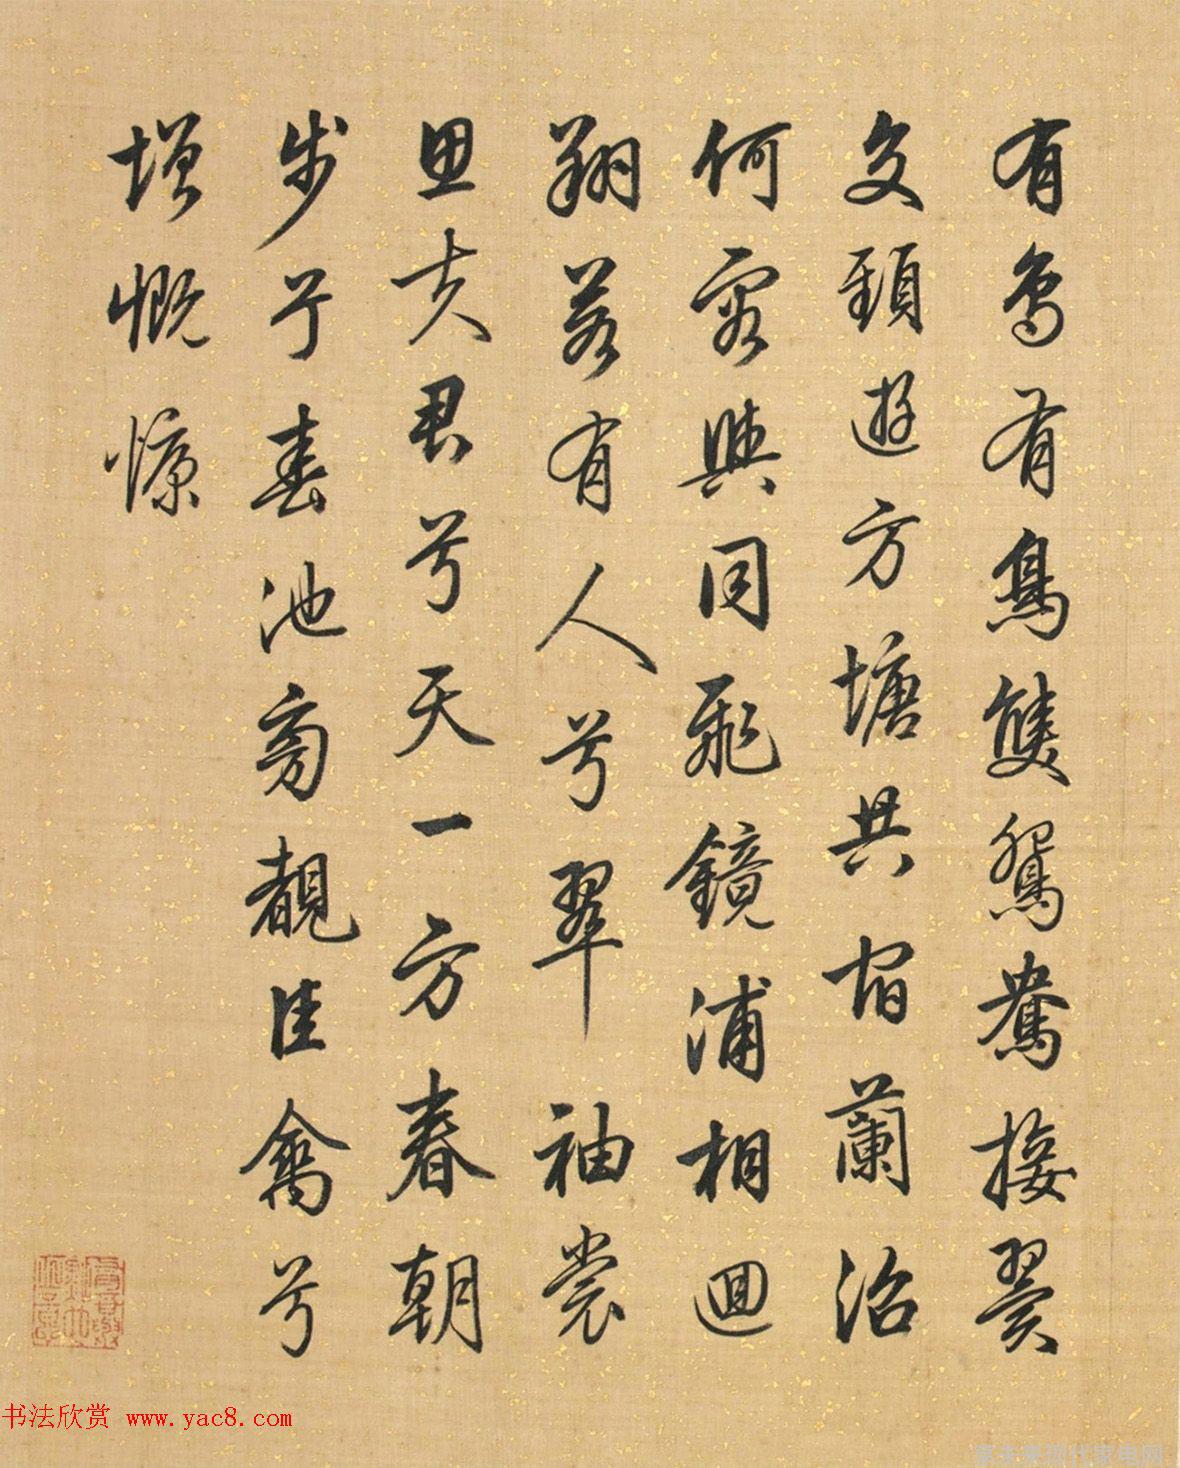 有鸟有鳥雙鴛鴦接翼
交頸遊方塘共宿蘭沼
何容與同飛鏡浦相迴
翔若有人兮翠袖裳
思夫君兮天一方春朝
步屧兮春池旁覩佳禽兮
增慨慷
书法欣赏 www.yac8.com